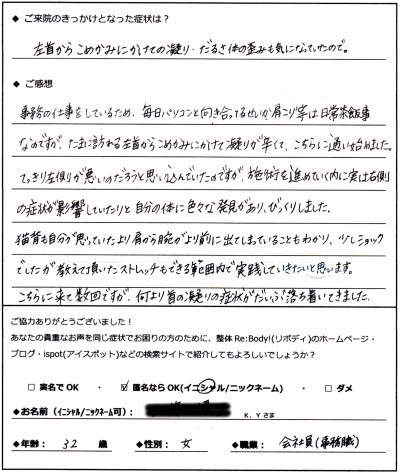 ◆ ご来院のきっかけとなった症状は？
左首からこめかみにかけての凝り・だるさ体の歪みも気になっていたので。
◆ ご感想
事務の仕事をしているため、毎日パソコンと向き合ってるせいか肩こり等は日常茶飯事
なのですが、たまに訪れる左首からこめかみにかけて凝りが辛くて、こちらに通い始めました。
てっきり左側が悪いのだろうと思い込んでいたのですが、施術を進めていく内に実は右側
の症状が影響していたりと自分の体に色々な発見があり、びっくりしました。
猫背も自分が思っていたより肩から腕がより前に出てしまっていることもわかり、少しショック
でしたが教えて頂いたストレッチもできる範囲内で実践していきたいと思います。
こちらに来て数回ですが、何より首の凝りの症状がだいぶ落ち着いてきました。
ご協力ありがとうございました！
あなたの貴重なお声を同じ症状でお困りの方のために、整体 Re:Body!(リボディ)のホームページ・
ブログ・ispot(アイスポット)などの検索サイトで紹介してもよろしいでしょうか？
□ 実名でOK ・ ☑ 匿名ならOK(イニシャル/ニックネーム) ・ □ ダメ
◆お名前（イニシャル/ニックネーム可）： K．Yさま
◆年齢： 32 歳 ◆性別： 女 ◆職業： 会社員(事務職)